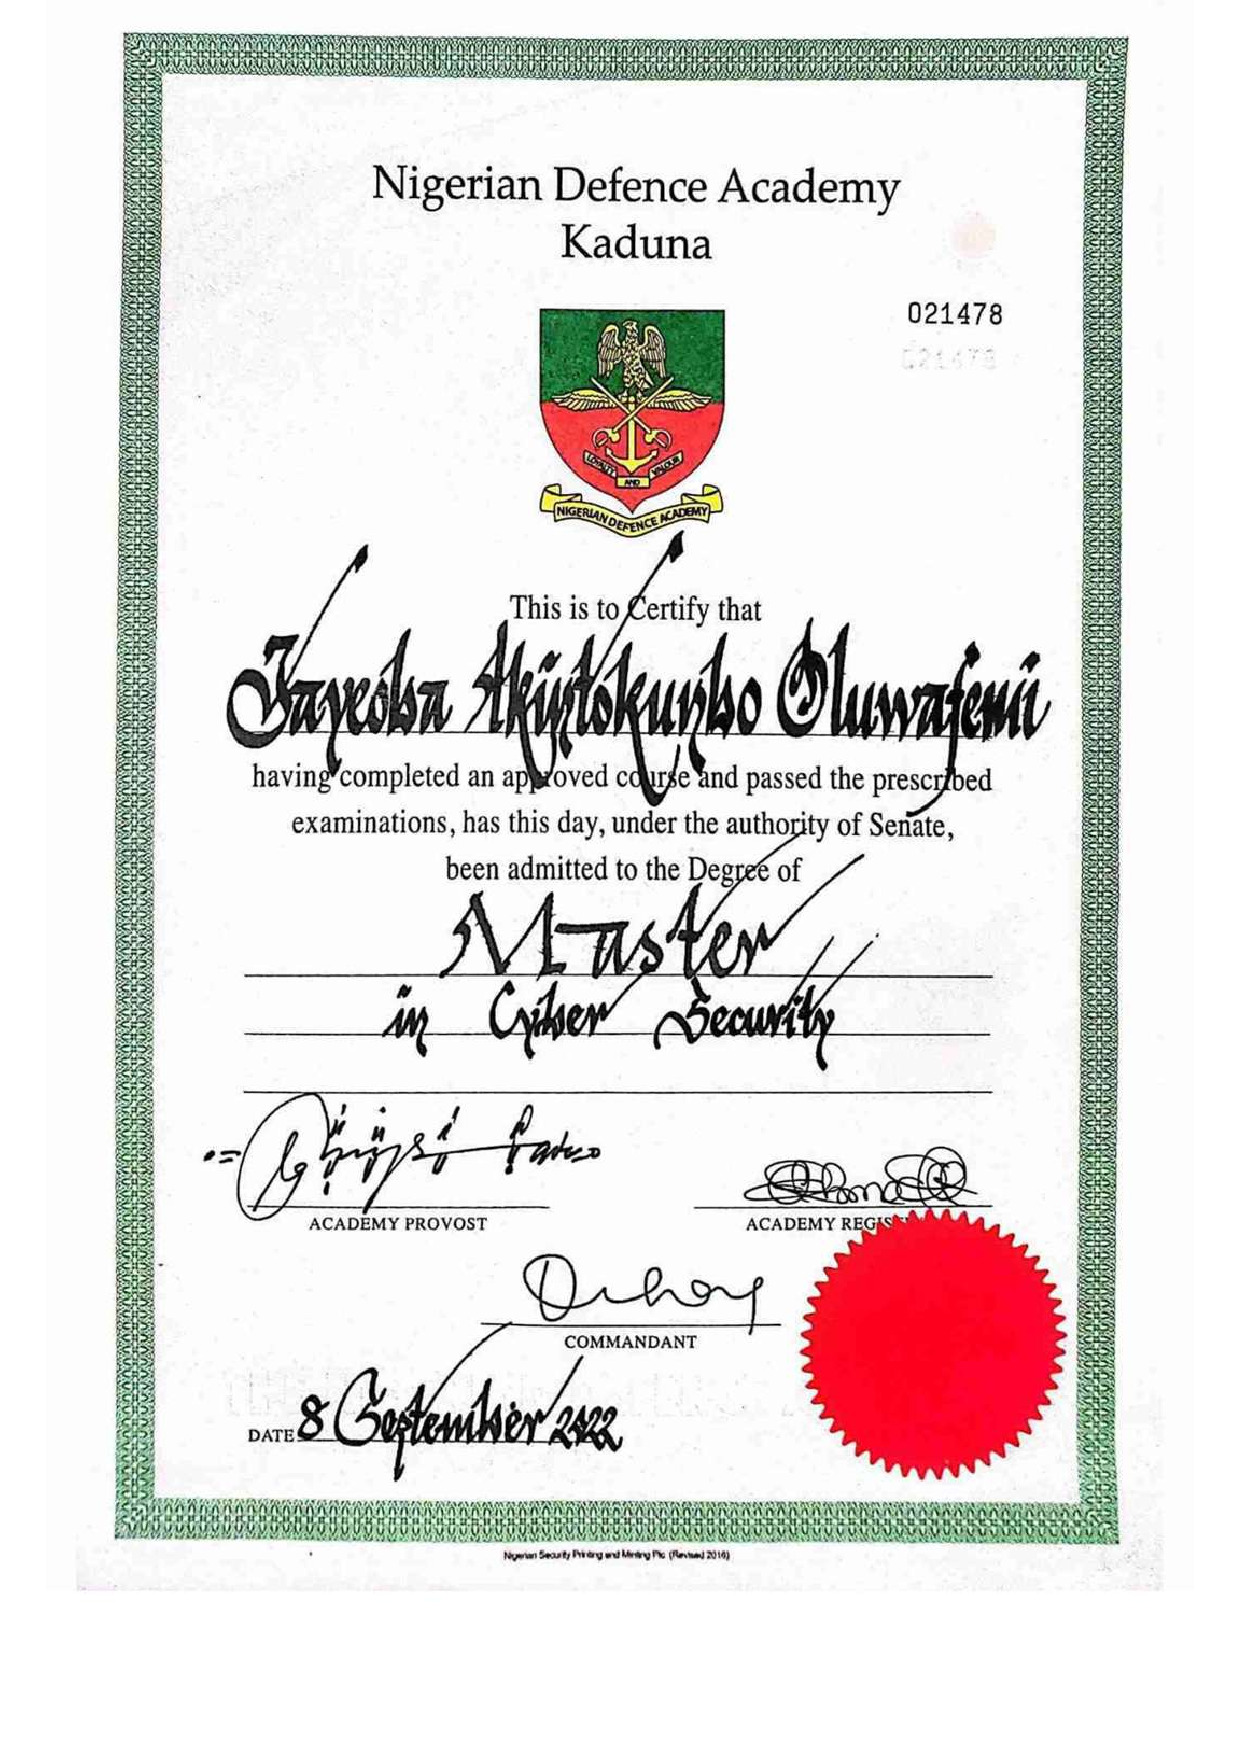 Nigerian Defence Academy
Kaduna
021478
021478
LOYALTY AND VALOUR
NIGERIAN DEFENCE ACADEMY
This is to Certify that
Fayeoba Akintokunbo Oluwafemi
having completed an approved course and passed the prescribed
examinations, has this day, under the authority of Senate,
been admitted to the Degree of
Master
in Cyber Security
ACADEMY PROVOST
ACADEMY REGIS
COMMANDANT
DATE 8 September 2022
Nigerian Security Printing and Minting Plc (Revised 2016)